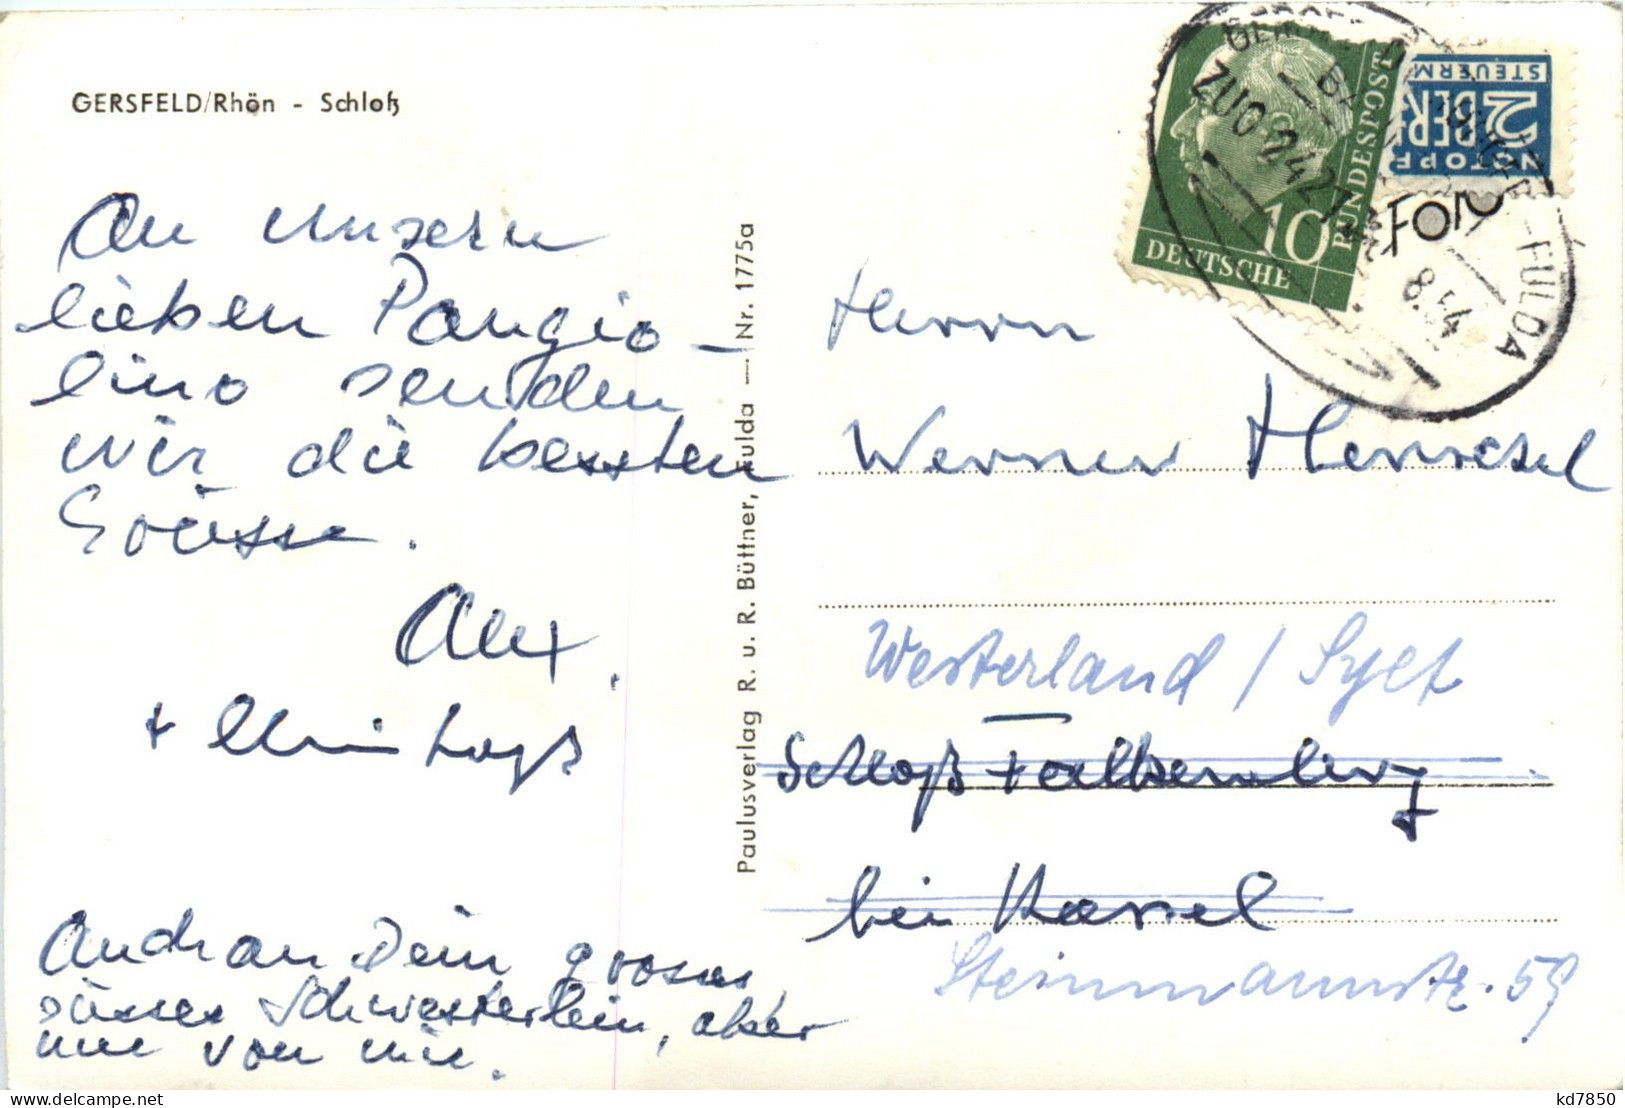 GERSFELD/Rhön - Schloß
An unsern
lieben Pangio-
lino senden
wir die bessten
Grüsse.
Alex.
+
Auch an Dein grosses,
süsses Schwesterlein, aber
nur von mir.
Paulusverlag R. u. R. Büttner, Fulda — Nr. 1775a
DEUTSCHE
BUNDESPOST
10
NOTOPFER
2 BER
STEUERM
ZUG 2427
8.54
FULDA
Herrn
Werner Henschel
Westerland / Sylt
Schloß Falkenberg
bei Kassel
Steinmannstr. 59
kd7850